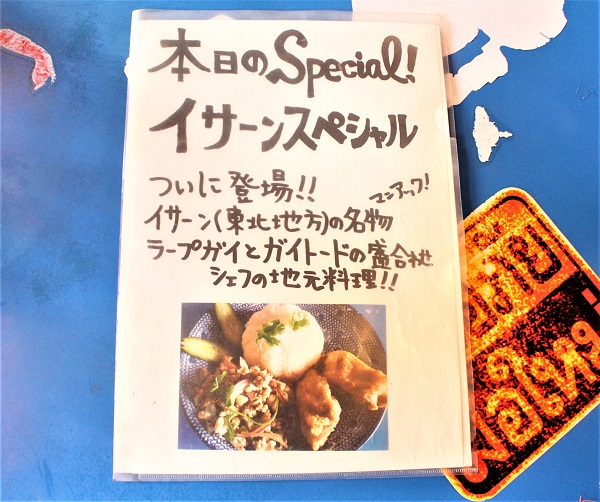 本日のSpecial!
イサーンスペシャル
ついに登場!!
マニアック!
イサーン(東北地方)の名物
ラープガイとガイトードの盛合わせ
シェフの地元料理!!